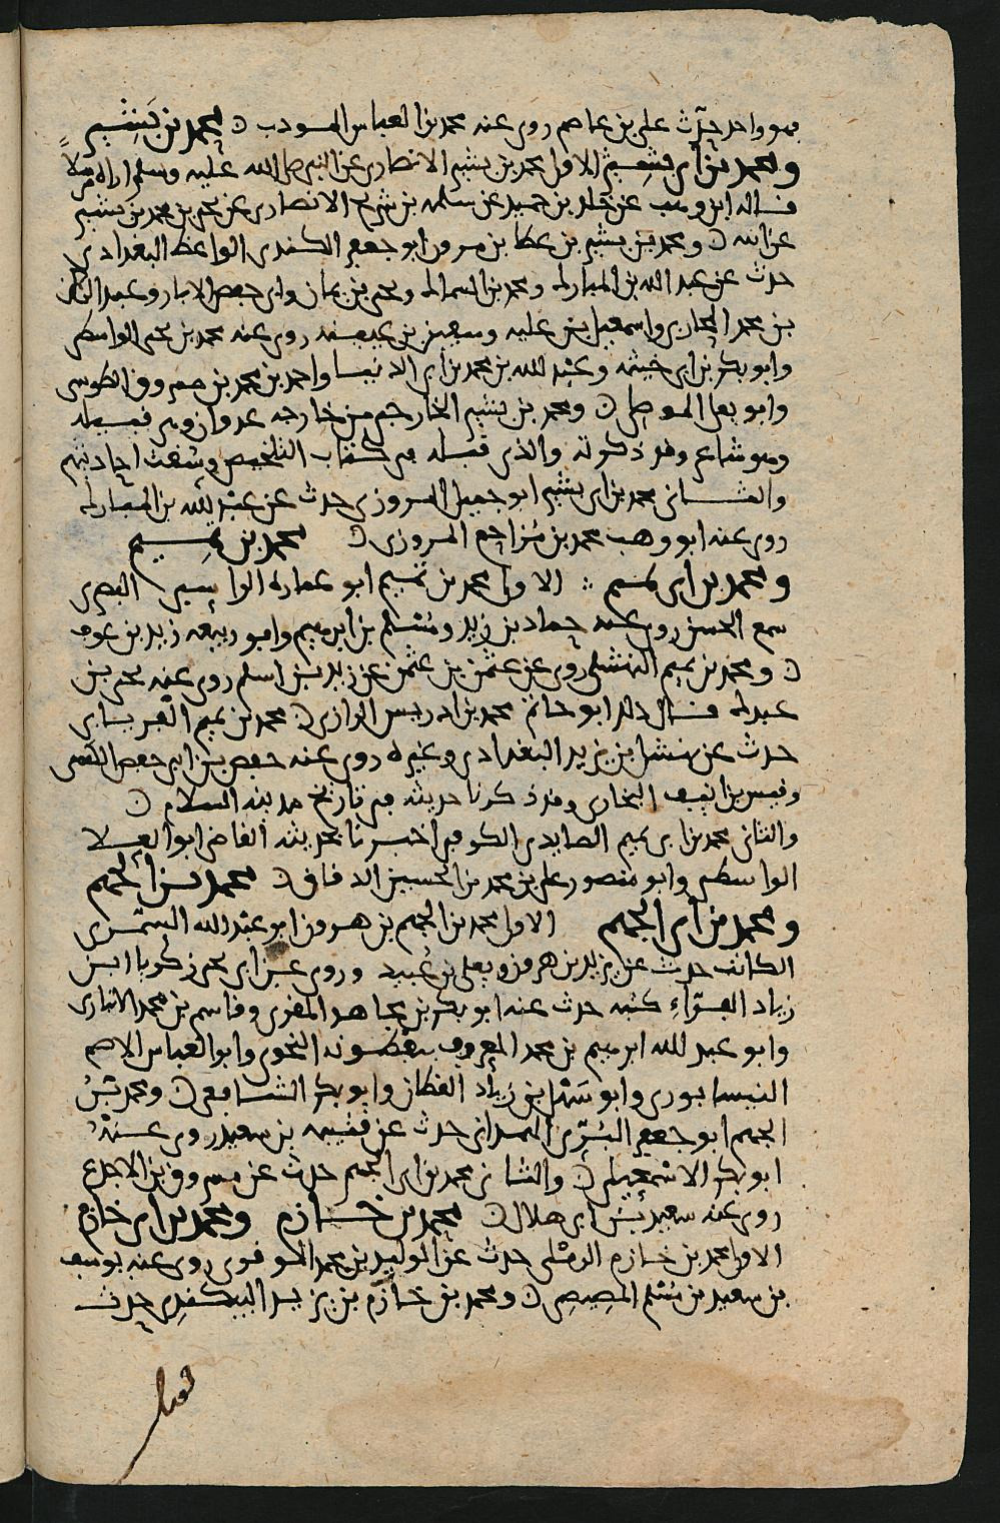 فهو واحد حدث علي بن عاصم روى عنه محمد بن العباس المودب ○ محمد بن بشير
ومحمد بن أبي بشير الاول محمد بن بشير الانصاري عن النبي صلى الله عليه وسلم اراه مرسلا
قاله ابن وهب عن خلد بن حميد عن سلمه بن شريح الانصاري عن يحيى بن محمد بن بشير
عن ابيه ○ ومحمد بن بشير بن عطا بن مرون ابو جعفر الكندي الواعظ البغدادي
حدث عن عبد الله بن المبارك ومحمد بن السماك ويحيى بن يمان وابي حفص الابار وعبد الرحمن
بن محمد المحاربي واسمعيل بن عليه وسفين بن عيينه روى عنه محمد بن يحيى الواسطي
وابو بكر بن ابي خيثمه وعبد الله بن محمد بن ابي الدنيا واحمد بن محمد بن مسروق الطوسي
وابو يعلى الموصلي ○ ومحمد بن بشير الخارجي من خارجه عدوان وهي قبيله
وهو شاعر وقد ذكرته والذي قبله في كتاب التلخيص وسقت احاديثهم
والثاني محمد بن ابي بشير ابو جميل المروزي حدث عن عبد الله بن المبارك
روى عنه ابو وهب محمد بن مزاحم المروزي ○ محمد بن تميم
ومحمد بن ابي تميم ∴ الاول محمد بن تميم ابو عماره الراسبي البصري
سمع الحسن روى عنه حماد بن زيد ومسلم بن ابرهيم وابو ربيعه زيد بن عوف
○ ومحمد بن تميم النهشلي روى عن عثمن بن عثمن عن زيد بن اسلم روى عنه يحيى بن
عبدك قال ذلك ابو حاتم محمد بن ادريس الرازي ○ محمد بن تميم الفريابي
حدث عن منشا بن يزيد البغدادي وغيره روى عنه حفص بن ابي حفص النسفي
وقيس بن انيف البخاري وقد ذكرنا حديثه في تاريخ مدينه السلام ○
والثاني محمد بن ابي تميم الصايدي الكوفي اخبرنا بحديثه القاضي ابو العلا
الواسطي وابو منصور علي بن محمد بن الحسين الدقاق ○ محمد بن الجهم
ومحمد بن أبي الجهم الاول محمد بن الجهم بن هرون ابو عبد الله السمري
الكاتب حدث عن يزيد بن هرون ويعلى بن عبيد وروى عن ابي يحيى زكريا ابن
زياد الفراء كتبه حدث عنه ابو بكر بن مجاهد المقري وقاسم بن محمد الانباري
وابو عبد الله ابرهيم بن محمد المعروف بنفطويه النحوي وابو العباس الاصم
النيسابوري وابو سهل بن زياد القطان وابو بكر الشافعي ○ ومحمد بن
الجهم ابو جعفر البزي الهمداني حدث عن قتيبه بن سعيد روى عنه
ابو بكر الاسمعيلي ○ والثاني محمد بن ابي الجهم حدث عن مسروق بن الاجدع
روى عنه سعيد بن ابي هلال ○ محمد بن خازم ومحمد بن ابي خازم
الاول محمد بن خازم الرملي حدث عن الوليد بن محمد الموقري روى عنه يوسف
بن سعيد بن مسلم المصيصي ○ ومحمد بن خازم بن يزيد البيكندي حدث